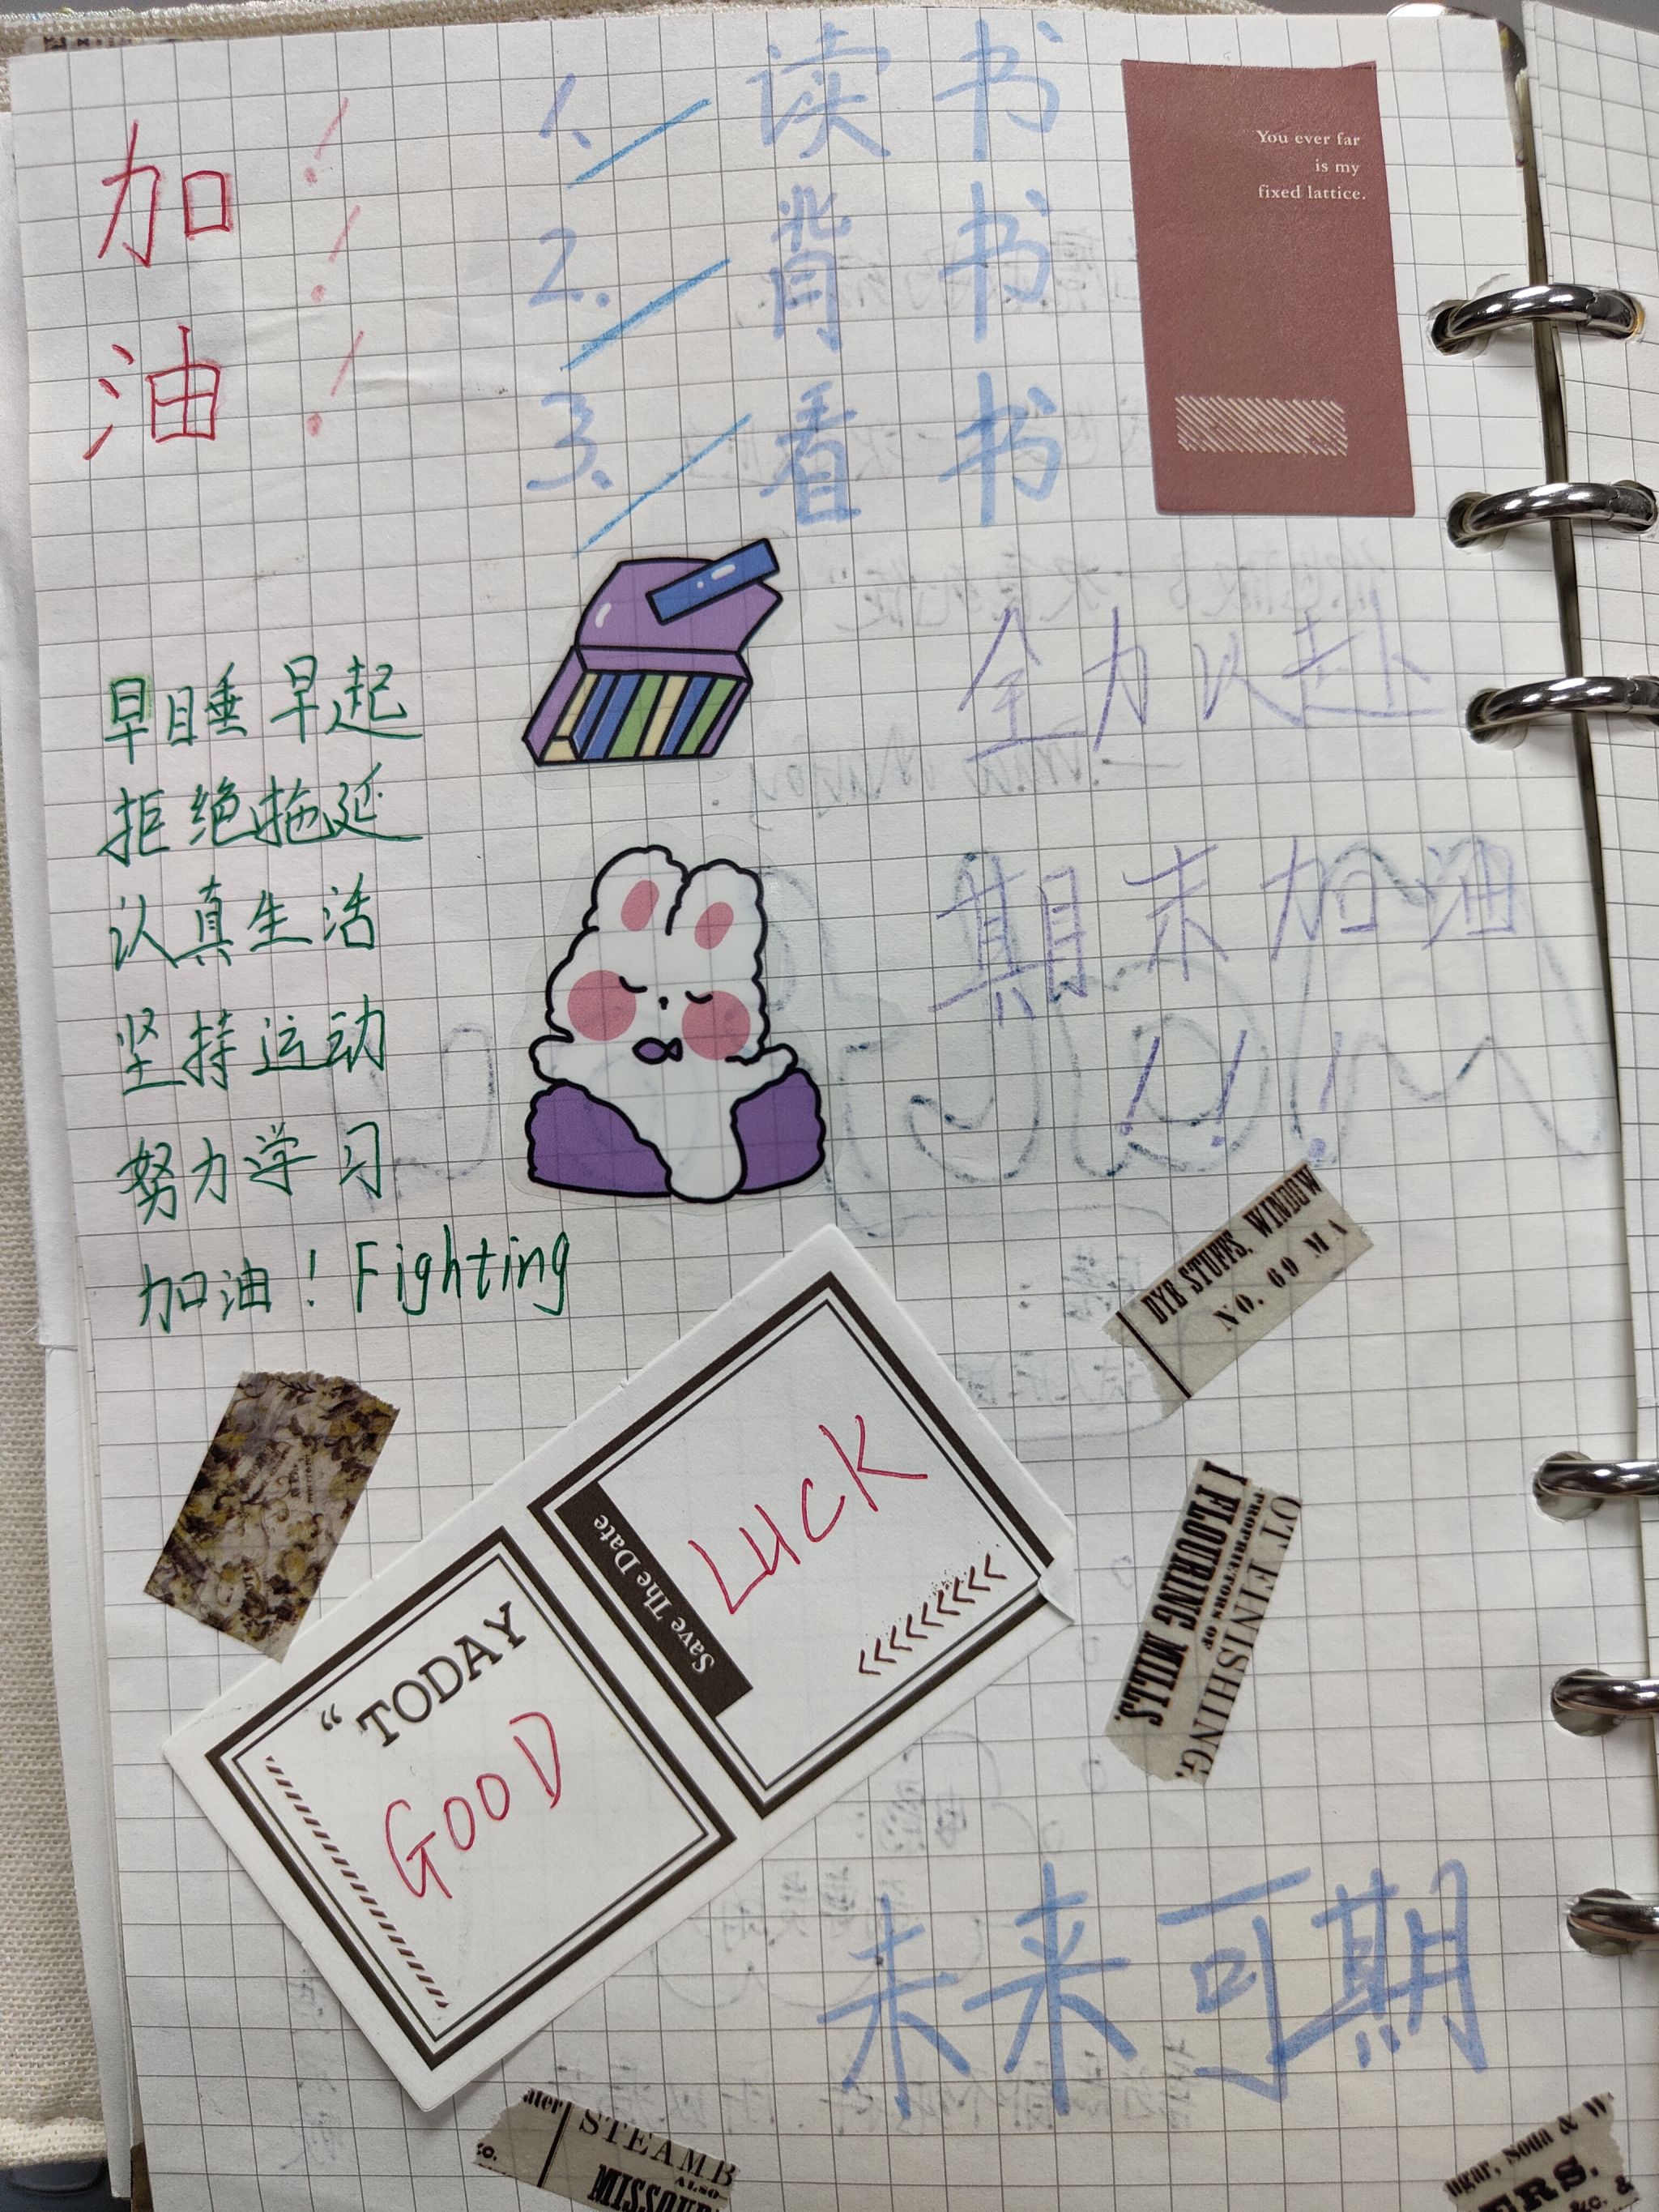 加 !
油 ! !
1、读书
2. 背书
3、看书
You ever far
is my
fixed lattice.
早睡早起
拒绝拖延
认真生活
坚持运动
努力学习
加油！Fighting
全力以赴
期末加油
! ! !
DYE STUFFS, WINDOW
NO. 69 MA
OT FINISHING,
PROPRIETORS OF
I FLOURING MILLS.
Save The Date
LUCK
“TODAY
GOOD
未来可期
ater
STEAMB
ALSO
MISSOUR
ugar, Soda & W
ERS.